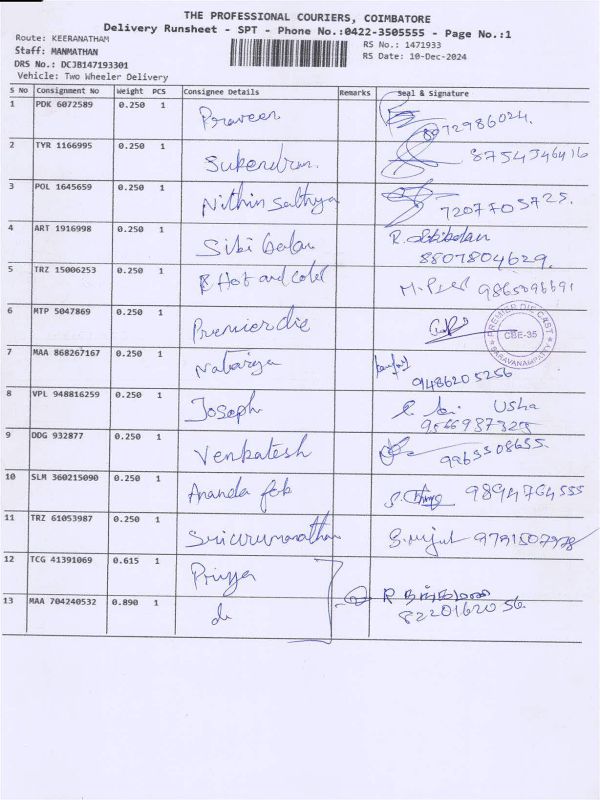 THE PROFESSIONAL COURIERS, COIMBATORE
Delivery Runsheet - SPT - Phone No.:0422-3505555 - Page No.:1
Route: KEERANATHAM
RS No.: 1471933
Staff: MANMATHAN
RS Date: 10-Dec-2024
DRS No.: DCJB147193301
Vehicle: Two Wheeler Delivery
S No Consignment No Weight PCS Consignee Details Remarks Seal & Signature
1 PDK 6072589 0.250 1 Praveen 8072986024.
2 TYR 1166995 0.250 1 Sukendran. 8754346416
3 POL 1645659 0.250 1 Nithin Sathya 7207705725.
4 ART 1916998 0.250 1 Sibi Balan R.
8807804629.
5 TRZ 15006253 0.250 1 Hot and cold
6 MTP 5047869 0.250 1 Premier die
PREMIER DIE CAST
CBE-35
SARAVANAMPATTY
7 MAA 868267167 0.250 1
9486205256
8 VPL 948816259 0.250 1 Joseph Usha
9566987325
9 DDG 932877 0.250 1 Venkatesh
10 SLM 360215090 0.250 1 Ananda 9894764555
11 TRZ 61053987 0.250 1
12 TCG 41391069 0.615 1 Priyya
13 MAA 704240532 0.890 1 do R
8220162056